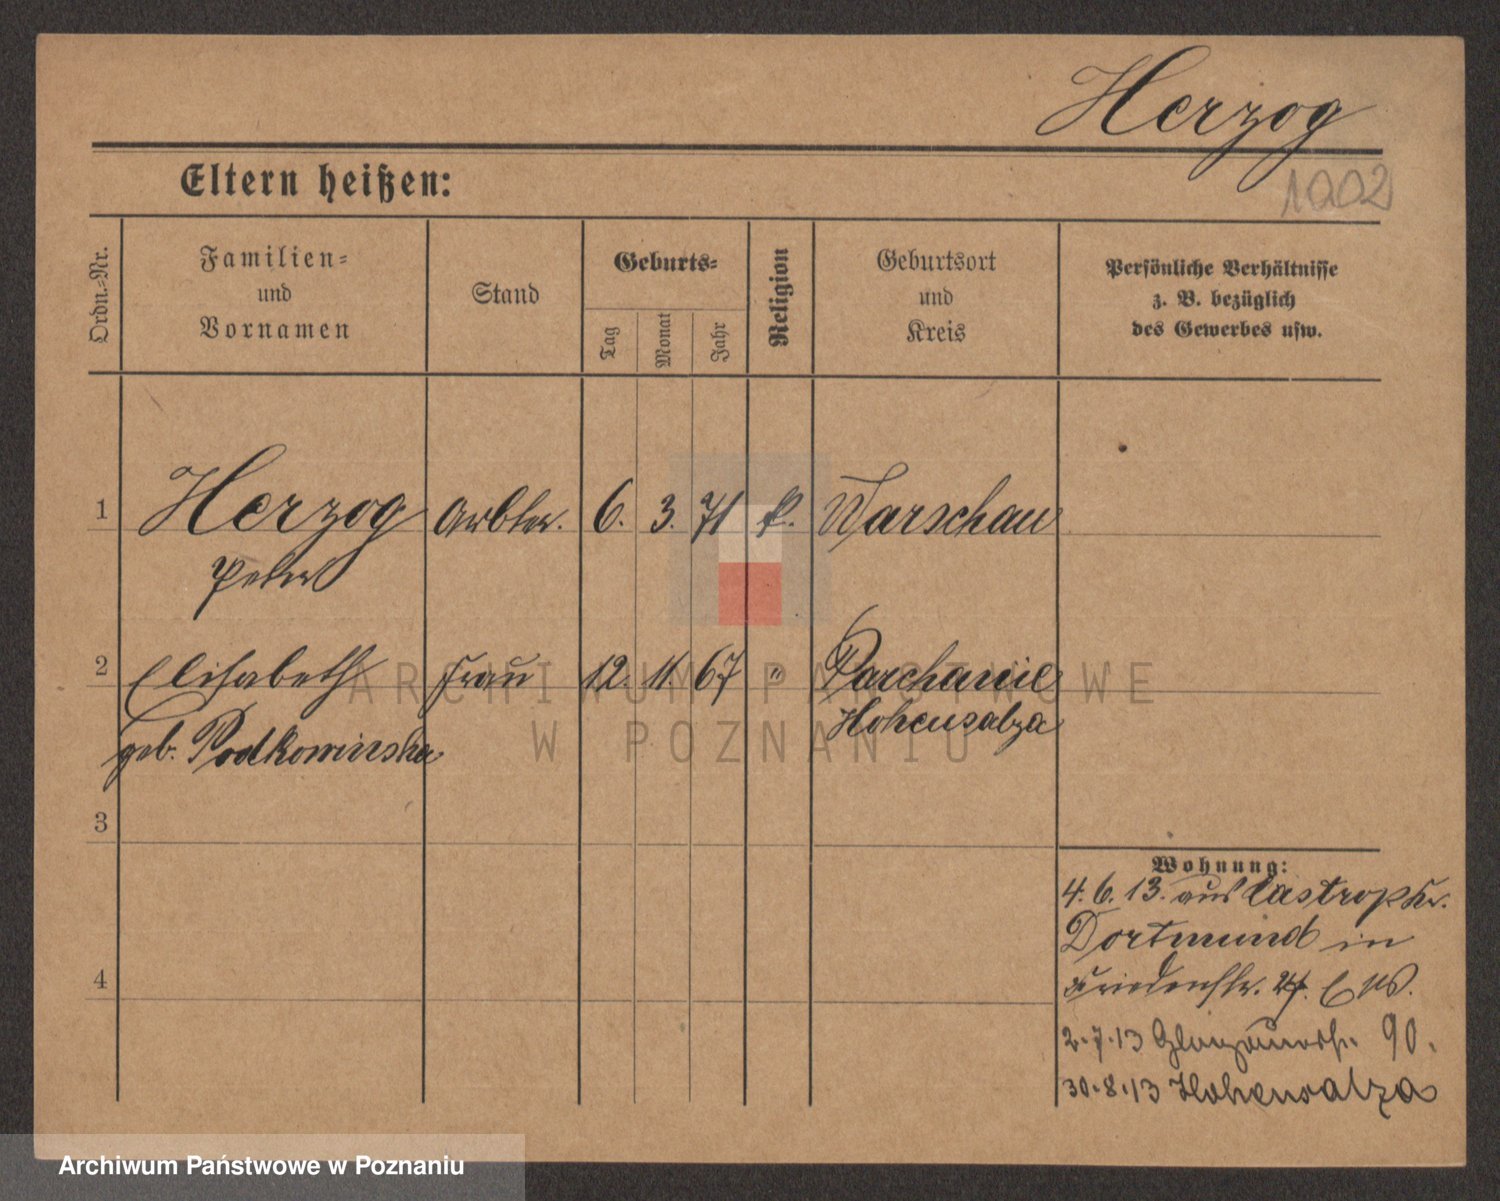 Herzog
1002
Eltern heißen:
Ordn.-Nr.
Familien-
und
Vornamen
Stand
Geburts-
Tag
Monat
Jahr
Religion
Geburtsort
und
Kreis
Persönliche Verhältnisse
z. B. bezüglich
des Gewerbes usw.
1 Herzog Arbter. 6. 3. 71 k. Warschau
Peter
2 Elisabeth Frau 12. 11. 67 " Parchanie
Hohensalza
geb. Podkominska
3
4
Wohnung:
4. 6. 13. aus Castrop Kr.
Dortmund in
Friedenstr.
2.7.13 90.
30.8.13 Hohensalza
ARCHIWUM PAŃSTWOWE
W POZNANIU
Archiwum Państwowe w Poznaniu